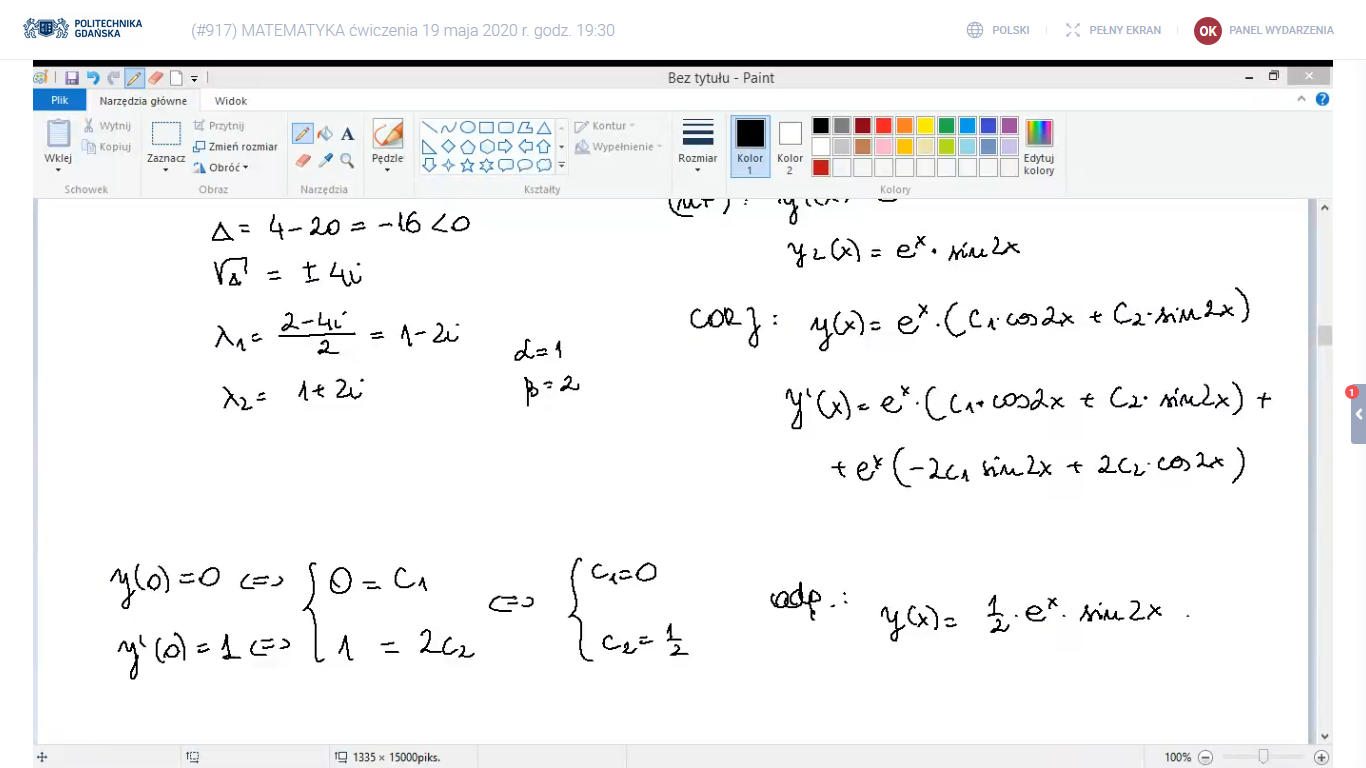 POLITECHNIKA
GDAŃSKA
(#917) MATEMATYKA ćwiczenia 19 maja 2020 r. godz. 19:30
POLSKI
PEŁNY EKRAN
OK
PANEL WYDARZENIA
Bez tytułu - Paint
Plik
Narzędzia główne
Widok
Wklej
Wytnij
Kopiuj
Schowek
Zaznacz
Przytnij
Zmień rozmiar
Obróć
Obraz
A
Narzędzia
Pędzle
Kształty
Kontur
Wypełnienie
Rozmiar
Kolor
1
Kolor
2
Edytuj
kolory
Kolory
Δ = 4 - 20 = -16 < 0
√Δ = ± 4i
λ1 = (2 - 4i)/2 = 1 - 2i
λ2 = 1 + 2i
α = 1
β = 2
y2(x) = e^x · sin2x
CORJ : y(x) = e^x · (C1·cos2x + C2·sin2x)
y'(x) = e^x · (C1·cos2x + C2·sin2x) +
+ e^x (-2C1 sin2x + 2C2·cos2x)
y(0) = 0 <=> { 0 = C1 <=> { C1 = 0
y'(0) = 1 <=> { 1 = 2C2 { C2 = 1/2
odp.: y(x) = 1/2 · e^x · sin2x .
1
1335 × 15000piks.
100%